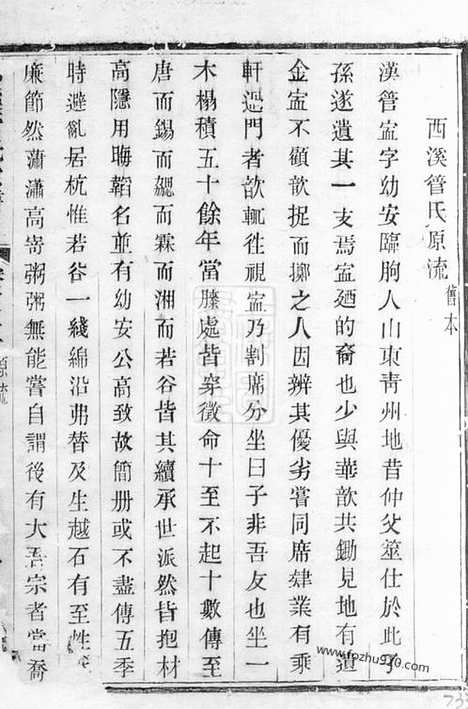 西溪管氏原流 舊本
漢管寍字幼安臨朐人山東靑州地昔仲父筮仕於此子
孫遂遺其一支焉寍廼的裔也少與華歆共鋤見地有遺
金寍不顧歆捉而擲之人因辨其優劣嘗同席肄業有乘
軒過門者歆輒徃視寍乃割席分坐曰子非吾友也坐一
木榻積五十餘年當膝處皆穿徵命十至不起十數傳至
唐而錫而勰而霖而湘而若谷皆其續承世派然皆抱材
高隱用晦韜名並有幼安公高致故簡册或不盡傳五季
時避亂居杭惟若谷一綫綿沿弗替及生越石有至性
廉節然蕭瀟高寄粥粥無能嘗自謂後有大吾宗者當喬
原流
www.fozhu920.com